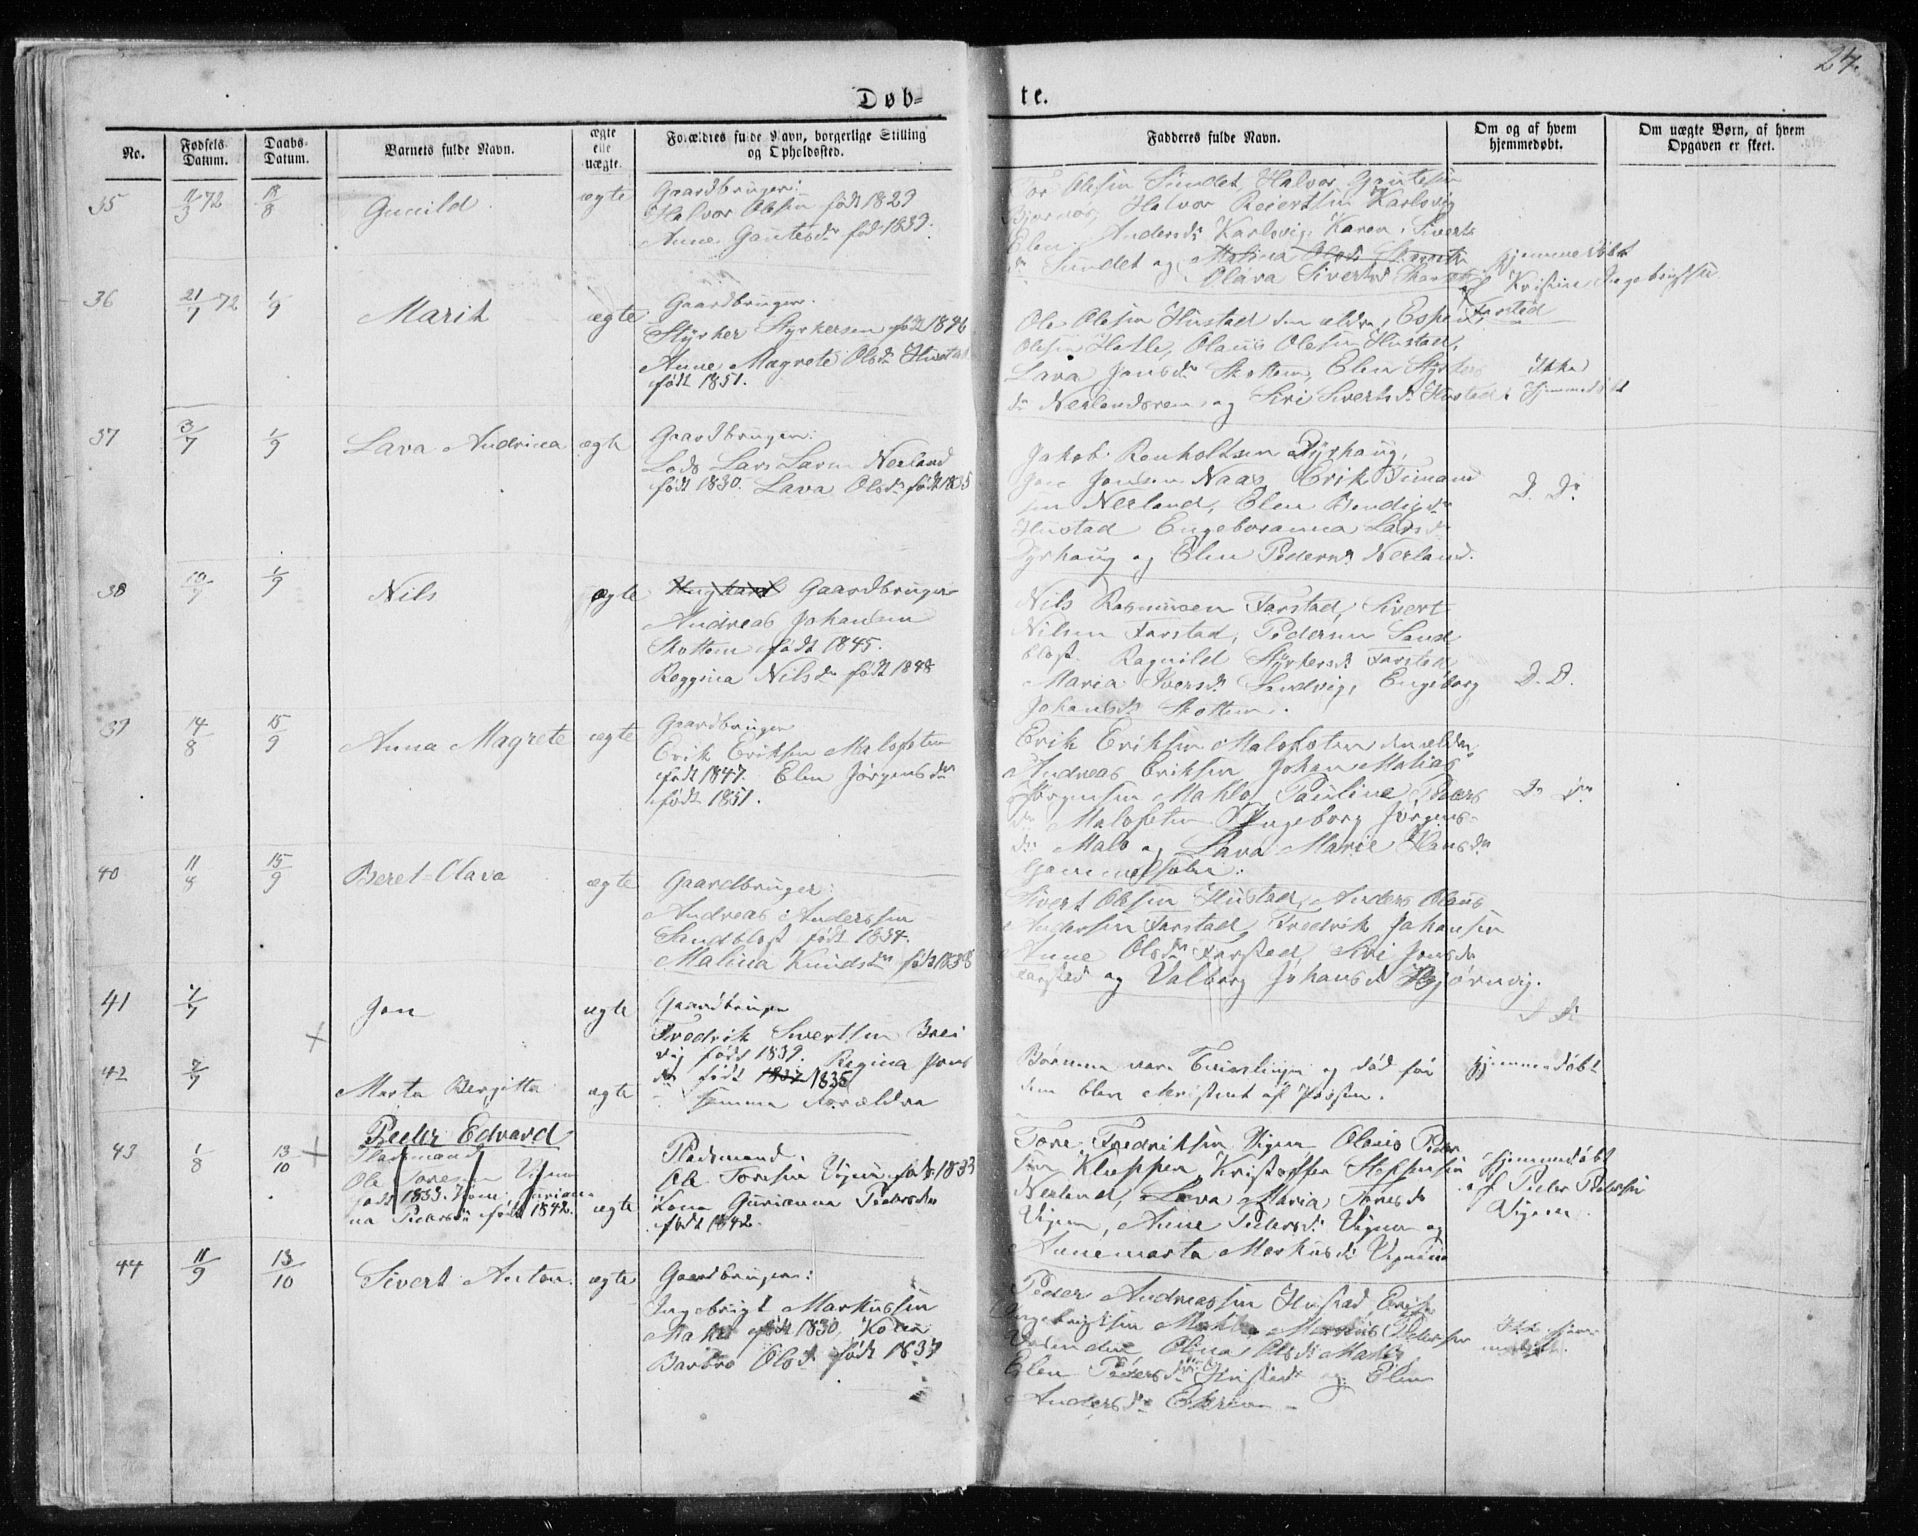 24.
Døb-
te.
No.
Fødsels Datum.
Daabs-Datum.
Barnets fulde Navn.
ægte elle uægte.
Forældres fulde Navn, borgerlige Stilling og Opholdssted.
Fadderes fulde Navn.
Om og af hvem hjemmedøbt.
Om uægte Børn, af hvem Opgaven er skeet.
35
11/3 72
18/8
Gunild
ægte
Gaardbruger:
Halvor Olsen født 1829
Anne Gautesdr født 1839.
Tor Olesen Sundet, Halvor Gautesen
Halvor Reiertsen Karlsvig
Elen Andersdr Karlsvig, Karen Siverts
dr Sundet og
Olava Sivertsd
hjemmedøbt
af Kristine Ingebrigtsen
Farstad
36
21/7 72
1/9
Marit
ægte
Gaardbruger.
Styrker Styrkersen født 1846
Anne Magrete Olsdr Hustad
født 1851.
Ole Olesen Hustad den ældre, Espen
Olesen Hatle, Olaus Olesen Hustad,
Lava Jonsdr Skotten, Elen Styrkers
dr Nerlandsrem og Siri Sivertsdr Hustad.
Ikke
hjemmedøbt
37
3/7
1/9
Lava Andrina
ægte
Gaardbruger:
Lods Lars Larsen Nerland
født 1830. Lava Olsdr født 1835
Jakob Ronholtsen Dyrhaug,
Jon Jonsen Naas, Erik Timand
sen Nerland, Elen Bendigsdr
Hustad Engeboranna Larsdr
Dyrhaug og Elen Pedersdr Nerland.
D. Do
38
19/7
1/9
Nils
ægte
Gaardbruger
Andreas Johansen
Skotten født 1845.
Reggina Nilsdr født 1848
Nils Rasmusen Farstad, Sivert
Nilsen Farstad, Pedersen Sand
blost. Ragnild Styrkersdr Farstad
Maria Iversdr Sandvig, Engeborg
Johansdr Skotten.
D. D.
39
14/8
15/9
Anna Magrete
ægte
Gaardbruger
Erik Eriksen Maloseten
født 1847. Elen Jørgensdr
født 1851.
Erik Eriksen Maloseten den ældre
Andreas Eriksen Johan Matias
Jørgensen Mahlo, Pauline Peders
dr Maloseten Ingeborg Jørgens-
dr Malo og Lava Marie Hansdr
D. Do
40
11/8
15/9
Beret-Olava
ægte
Gaardbruger:
Andreas Anderssen
Sandblost født 1834.
Malina Knudsdr født 1838
Sivert Olesen Hustad, Anders Olaus
Andersen Farstad, Fredrik Johansen
Anne Olsdr Farstad, Siri Jonsdr
Farstad og Valborg Johansdr Bjørnvig.
D Do
41
7/7
Jon
ægte
Gaardbruger
Fredrik Sivertsen Brei
vig født 1839. Regina Jons
dr født 1837 1835
Børnene vare Tvinlinger og død før
dem blev Kristnet af Præsten.
hjemmedøbt
42
7/7
Marta Bergitta
ægte
samme Forældre
43
1/8
13/10
Peder Edvard
Pladsmand
Ole Toresen Vigen
født 1833. Kone Gurian-
na Pedersdr født 1842.
ægte
Pladsmand.
Ole Toresen Vigen født 1833
Kone Gurianna Pedersdr
født 1842.
Tore Fredriksen Vigen Olaus Peder
sen Kleppen, Kristoffer Steffensen
Nerland, Lava Maria Toresdr
Vigen, Anne Pedersdr Vigen og
Annemarta Markusdr Vigen
hjemmedøbt
af Peder Pedersen
Vigen.
44
11/9
13/10
Sivert Anton.
ægte
Gaardbruger:
Ingebrigt Markussen
født 1830, Kone
Barbro Olsdr født 1837
Peder Andreassen Hustad, Erik
Ingebrigtsen Mahlo, Markus Pedersen
Olina Olsdr
Elen Pedersdr Hustad og Elen
Andersdr